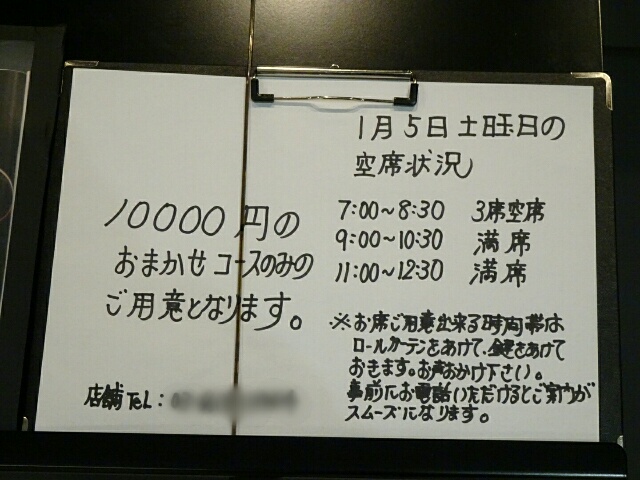 10000円の
おまかせコースのみの
ご用意となります。
店舗TeL:
1月5日土曜日の
空席状況
7:00~8:30 3席空席
9:00~10:30 満席
11:00~12:30 満席
※お席ご用意出来る時間帯は
ロールカーテンをあけて、鍵をあけて
おきます。お声おかけ下さい。
事前にお電話いただけるとご案内が
スムーズになります。